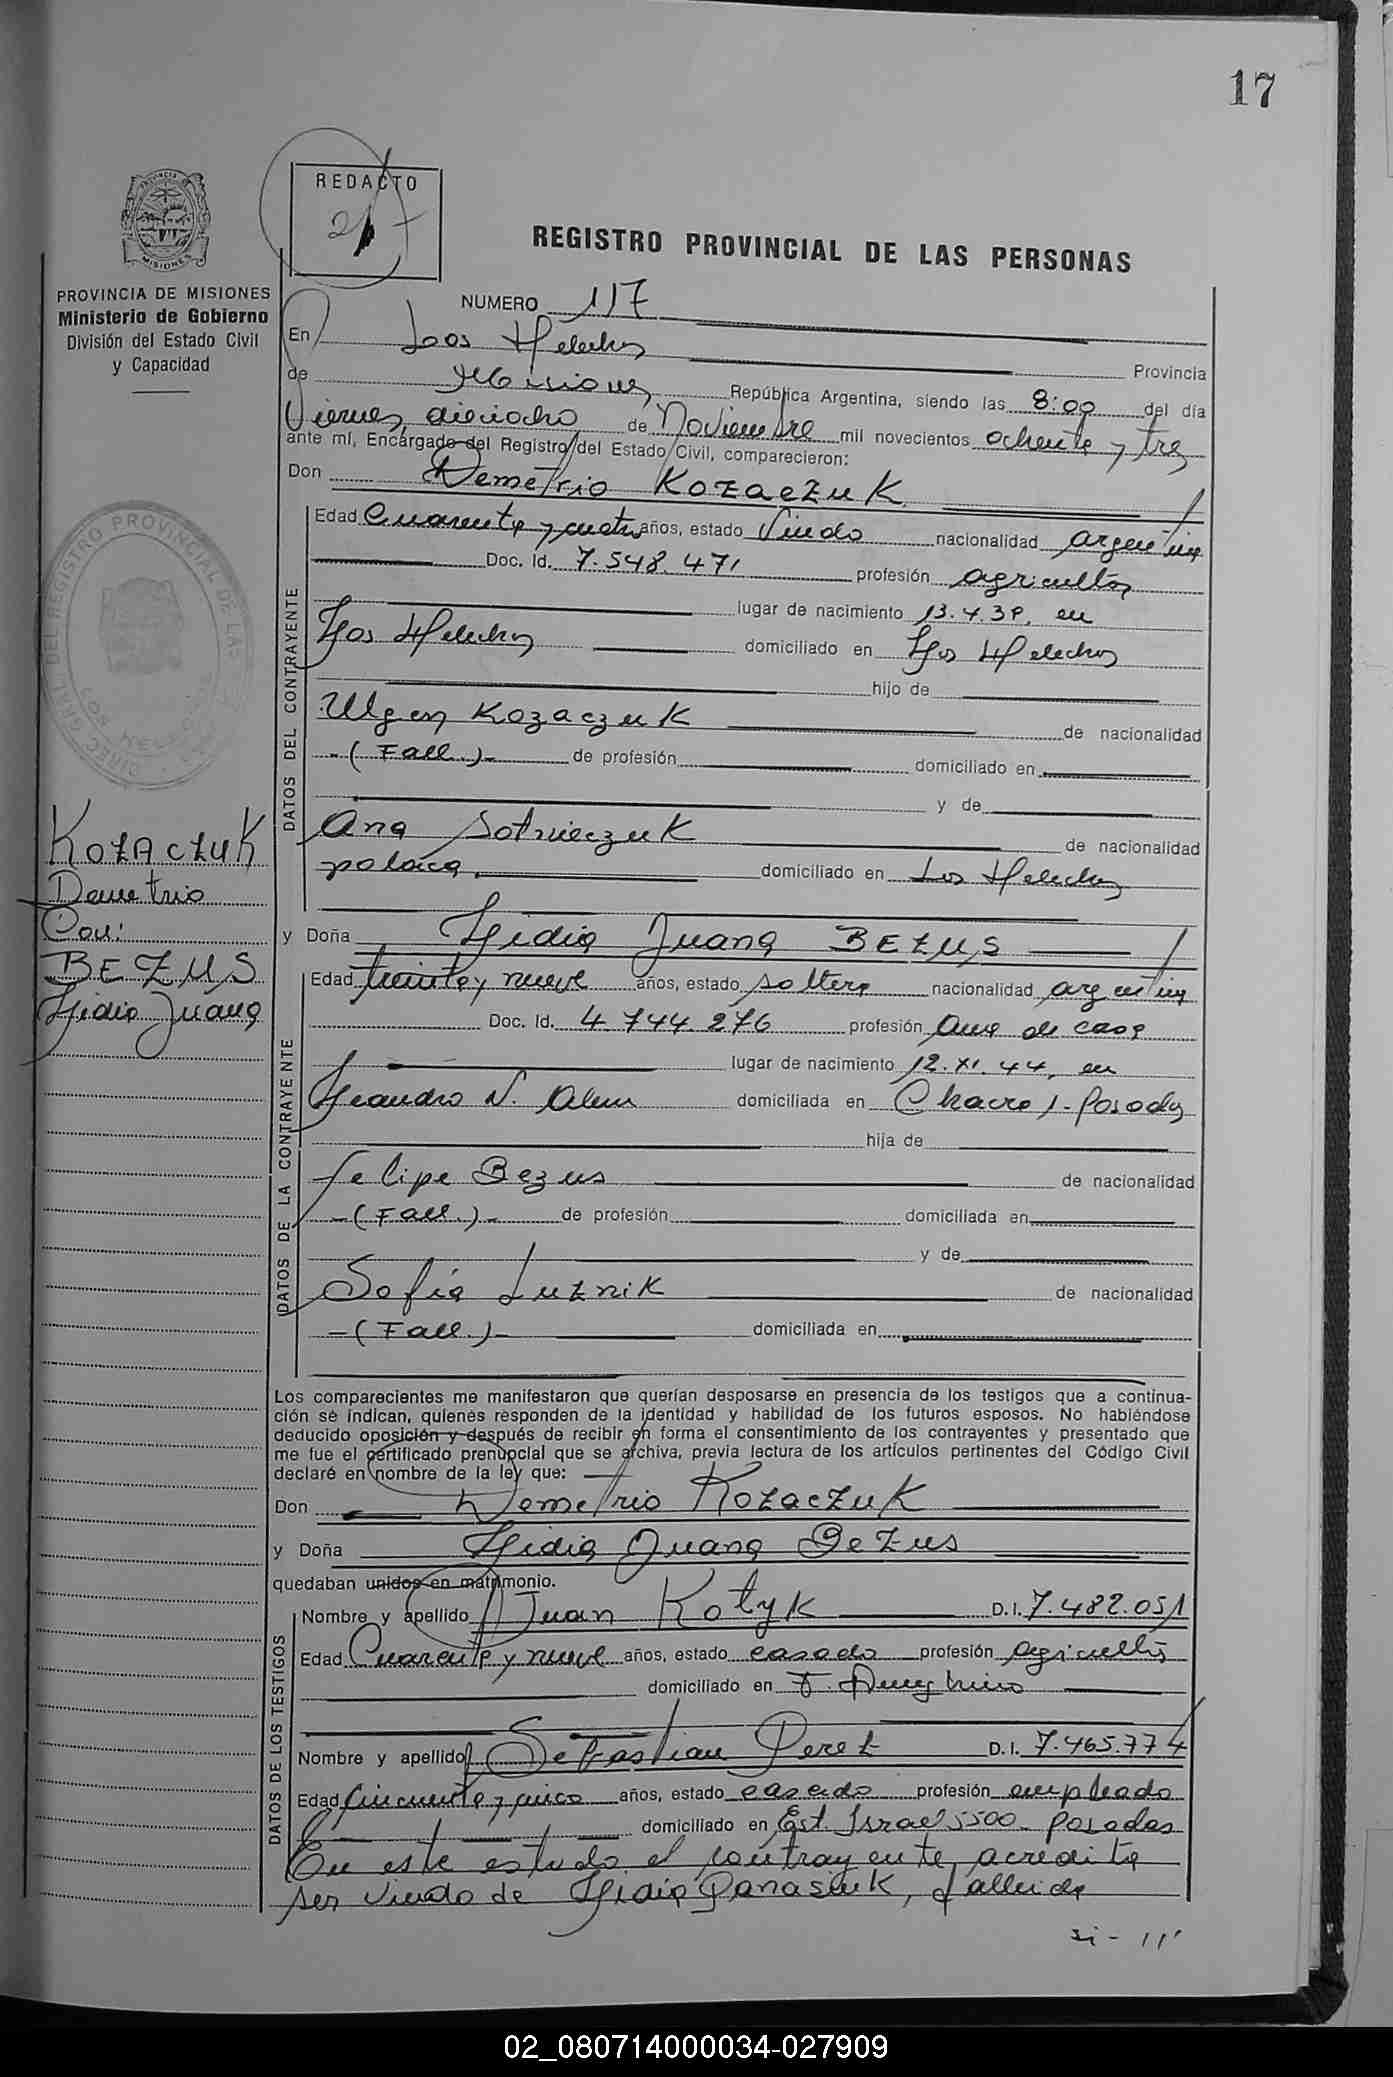 17
REDACTO
PROVINCIA DE MISIONES
Ministerio de Gobierno
División del Estado Civil
y Capacidad
REGISTRO PROVINCIAL DE LAS PERSONAS
NUMERO 117
En Los Helechos
Provincia
de Misiones República Argentina, siendo las 8:00 del día
Viernes dieciocho de Noviembre mil novecientos ochenta y tres
ante mí, Encargado del Registro del Estado Civil, comparecieron:
Don Demetrio KOZACZUK
Edad Cuarenta y cuatro años, estado Viudo nacionalidad argentina
Doc. Id. 7.548.471 profesión agricultor
lugar de nacimiento 13.4.39, en
Los Helechos domiciliado en Los Helechos
hijo de
Ulgen Kozaczuk de nacionalidad
-(Fall.)- de profesión domiciliado en
y de
Ana Sotnieczuk de nacionalidad
polaca, domiciliado en Los Helechos
DATOS DEL CONTRAYENTE
KOZACZUK
Demetrio
Con:
BEZUS
Lidia Juana
y Doña Lidia Juana BEZUS
Edad treinta y nueve años, estado soltera nacionalidad argentina
Doc. Id. 4.744.276 profesión Ama de casa
lugar de nacimiento 12.XI.44, en
Leandro N. Alem domiciliada en Chacra 1-Posadas
hija de
Felipe Bezus de nacionalidad
-(Fall.)- de profesión domiciliada en
y de
Sofía Luznik de nacionalidad
-(Fall.)- domiciliada en
DATOS DE LA CONTRAYENTE
Los comparecientes me manifestaron que querían desposarse en presencia de los testigos que a continua-
ción se indican, quienes responden de la identidad y habilidad de los futuros esposos. No habiéndose
deducido oposición y después de recibir en forma el consentimiento de los contrayentes y presentado que
me fue el certificado prenupcial que se archiva, previa lectura de los artículos pertinentes del Código Civil
declaré en nombre de la ley que:
Don Demetrio Kozaczuk
y Doña Lidia Juana Bezus
quedaban unidos en matrimonio.
Nombre y apellido Juan Kotyk D.I. 7.482.051
Edad Cuarenta y nueve años, estado casado profesión agricultor
domiciliado en F. Ameghino
Nombre y apellido Sebastian Perez D.I. 7.465.774
Edad Cincuenta y cinco años, estado casado profesión empleado
domiciliado en Est. Israel 5500 - Posadas
DATOS DE LOS TESTIGOS
En este estado el contrayente, acredita
ser viudo de Lidia Panasiuk, fallecida
02_080714000034-027909